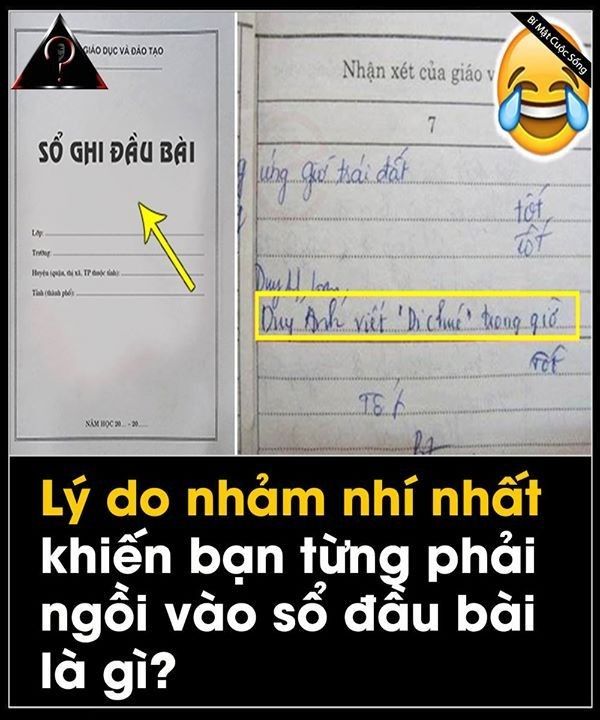 GIÁO DỤC VÀ ĐÀO TẠO
SỔ GHI ĐẦU BÀI
Lớp:
Trường:
Huyện (quận, thị xã, TP thuộc tỉnh):
Tỉnh (thành phố):
NĂM HỌC 20... -20.....
Nhận xét của giáo v
7
ứng giờ trái đất
tốt
tốt
Duy
Duy Anh viết "Di chúc" trong giờ
Tốt
Tốt
Bí Mật Cuộc Sống
Lý do nhảm nhí nhất
khiến bạn từng phải
ngồi vào sổ đầu bài
là gì?